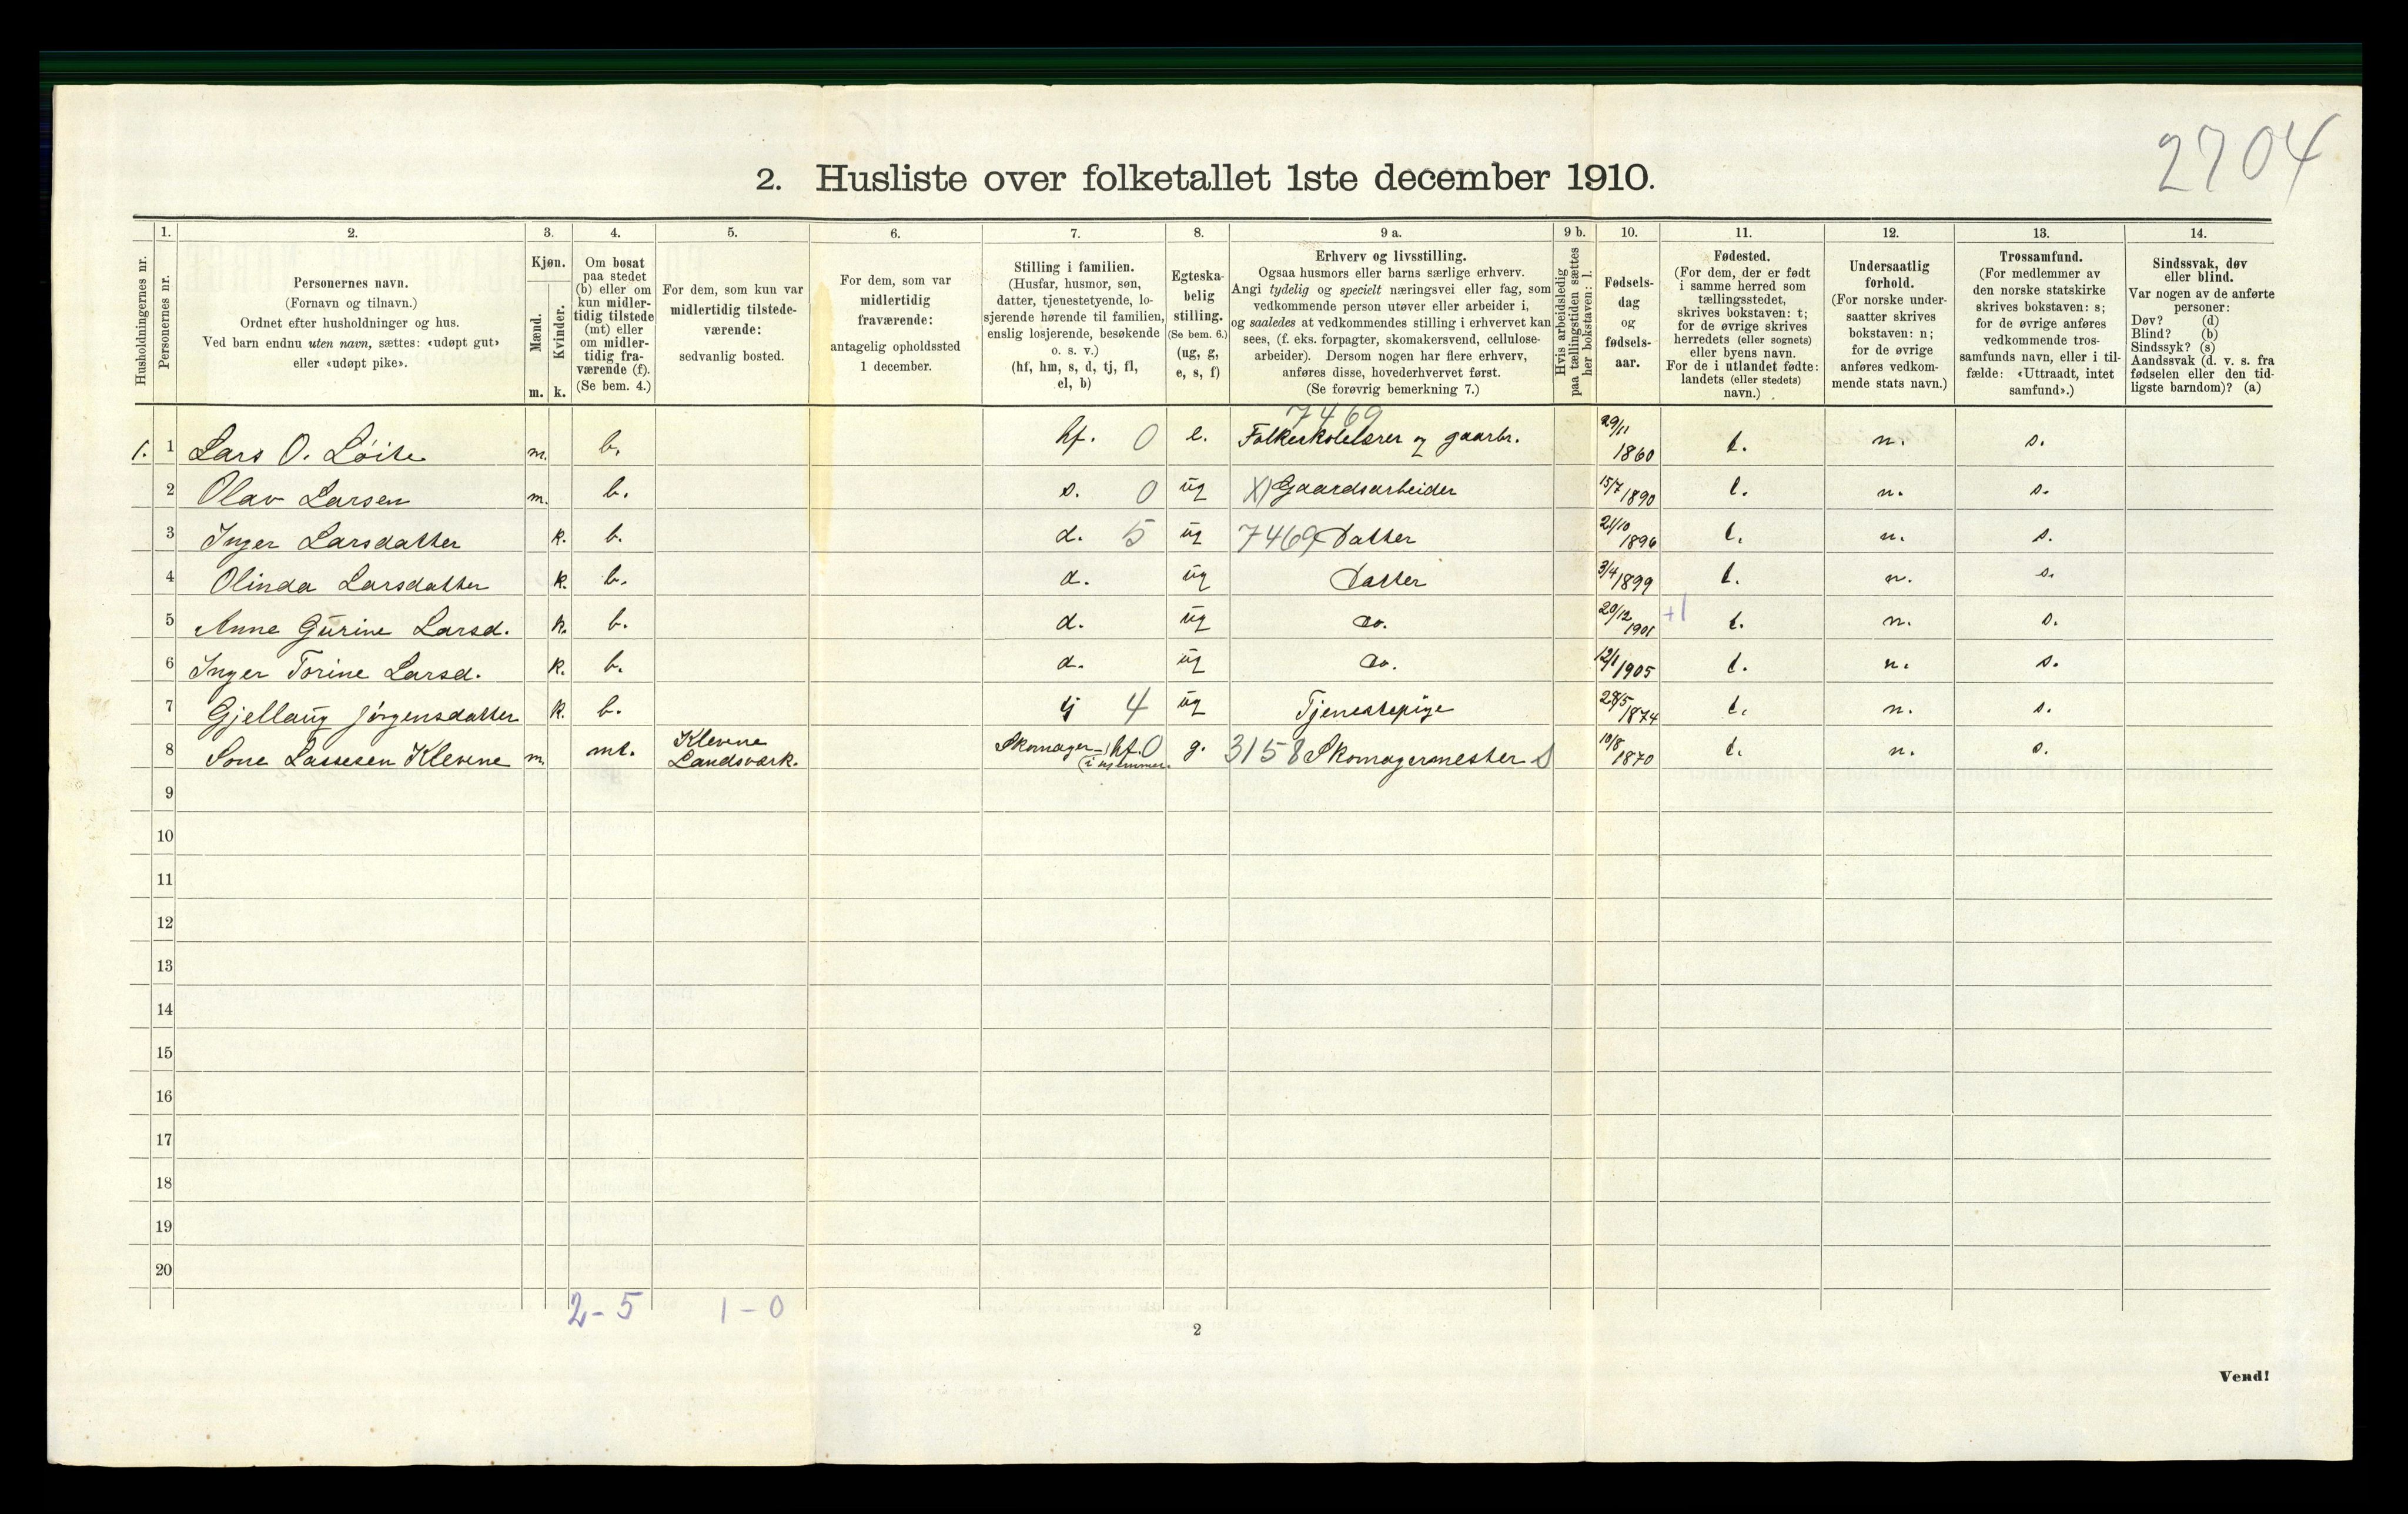 2704
2. Husliste over folketallet 1ste december 1910.
Husholdningernes nr.
1.
Personernes nr.
2.
Personernes navn.
(Fornavn og tilnavn.)
Ordnet efter husholdninger og hus.
Ved barn endnu uten navn, sættes: «udøpt gut»
eller «udøpt pike».
3.
Kjøn.
Mænd.
Kvinder.
m. k.
4.
Om bosat
paa stedet
(b) eller om
kun midler-
tidig tilstede
(mt) eller
om midler-
tidig fra-
værende (f).
(Se bem. 4.)
5.
For dem, som kun var
midlertidig tilstede-
værende:
sedvanlig bosted.
6.
For dem, som var
midlertidig
fraværende:
antagelig opholdssted
1 december.
7.
Stilling i familien.
(Husfar, husmor, søn,
datter, tjenestetyende, lo-
sjerende hørende til familien,
enslig losjerende, besøkende
o. s. v.)
(hf, hm, s, d, tj, fl,
el, b)
8.
Egteska-
belig
stilling.
(Se bem. 6.)
(ug, g,
e, s, f)
9 a.
Erhverv og livsstilling.
Ogsaa husmors eller barns særlige erhverv.
Angi tydelig og specielt næringsvei eller fag, som
vedkommende person utøver eller arbeider i,
og saaledes at vedkommendes stilling i erhvervet kan
sees, (f. eks. forpagter, skomakersvend, cellulose-
arbeider). Dersom nogen har flere erhverv,
anføres disse, hovederhvervet først.
(Se forøvrig bemerkning 7.)
9 b.
Hvis arbeidsledig
paa tællingstiden sættes
her bokstaven: l.
10.
Fødsels-
dag
og
fødsels-
aar.
11.
Fødested.
(For dem, der er født
i samme herred som
tællingsstedet,
skrives bokstaven: t;
for de øvrige skrives
herredets (eller sognets)
eller byens navn.
For de i utlandet fødte:
landets (eller stedets)
navn.)
12.
Undersaatlig
forhold.
(For norske under-
saatter skrives
bokstaven: n;
for de øvrige
anføres vedkom-
mende stats navn.)
13.
Trossamfund.
(For medlemmer av
den norske statskirke
skrives bokstaven: s;
for de øvrige anføres
vedkommende tros-
samfunds navn, eller i til-
fælde: «Uttraadt, intet
samfund».)
14.
Sindssvak, døv
eller blind.
Var nogen av de anførte
personer:
Døv? (d)
Blind? (b)
Sindssyk? (s)
Aandssvak (d. v. s. fra
fødselen eller den tid-
ligste barndom)? (a)
7469
1. 1 Lars O. Löite m. b. hf. 0 e. Folkeskolelærer og gaarbr. 29/11 1860 t. n. s.
2 Olav Larsen m. b. s. 0 ug X) Gaardsarbeider 15/7 1890 t. n. s.
3 Inger Larsdatter k. b. d. 5 ug 7469 Datter 21/10 1896 t. n. s.
4 Olinda Larsdatter k. b. d. ug Datter 3/4 1899 t. n. s.
5 Anne Gurine Larsd. k. b. d. ug do. 20/12 1901 +1 t. n. s.
6 Inger Torine Larsd. k. b. d. ug do. 12/1 1905 t. n. s.
7 Gjellaug Jörgensdatter k. b. tj 4 ug Tjenestepige 28/5 1874 t. n. s.
8 Sone Lassesen Klevene m. mt. Klevene Landsværk. Skomager hf. 0 g. 3158 Skomagermester S 10/8 1870 t. n. s.
9
10
11
12
13
14
15
16
17
18
19
20
2-5 1-0
2
Vend!